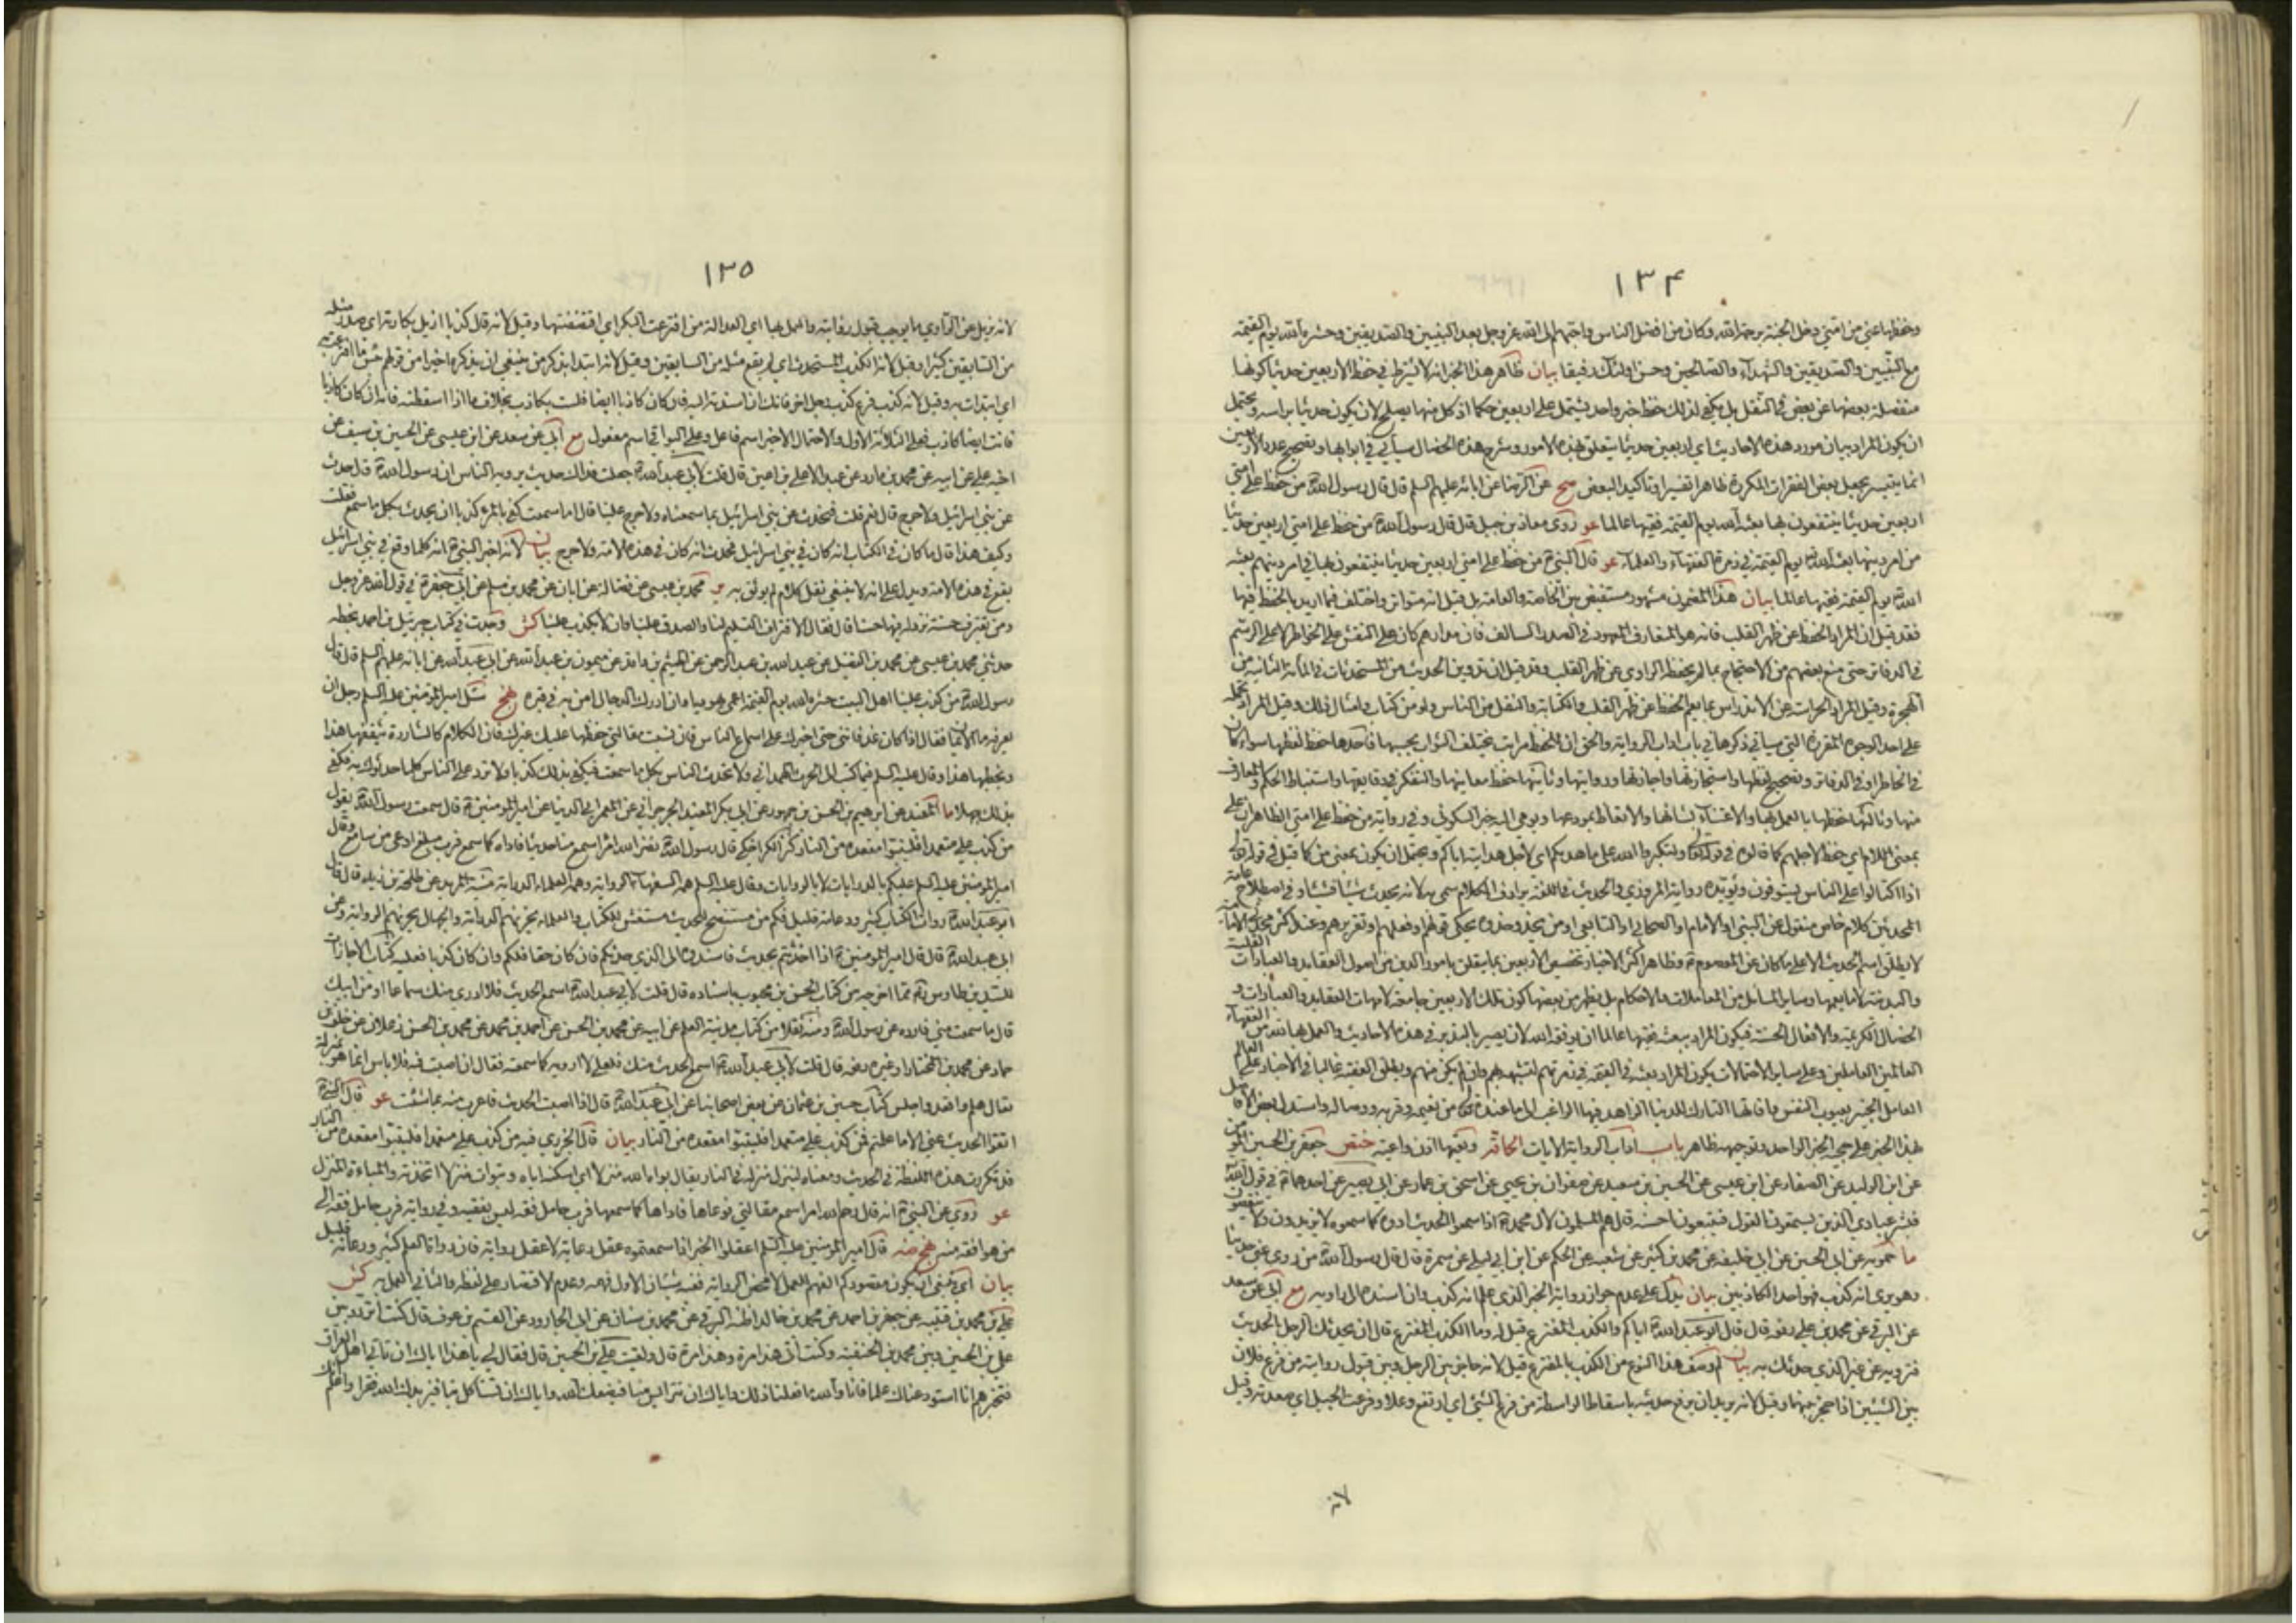 ١٣۴
وحفظها عني من امتي دخل الجنة برحمة الله وكان من افضل الناس واحبهم الى الله عز وجل بعد النبيين والصديقين وحشره الله يوم القيمة
مع النبيين والصديقين والشهدآء والصالحين وحسن اولئك رفيقا بيان ظاهر هذا الخبر انه لا يشترط في حفظ الاربعين حديثا كونها
منفصلة بعضها عن بعض في النقل بل يكفي لذلك حفظ خبر واحد يشتمل على اربعين حكما اذ كل منها يصلح لان يكون حديثا براسه ويحتمل
ان يكون المراد بيان مورد هذه الاحاديث اي اربعين حديثا يتعلق بهذه الامور وشرح هذه الخصال سيأتي في ابوابها وتصحيح عدد الاربعين
انما يتيسر بجعل بعض الفقرات المكررة ظاهرا تفسيرا وتاكيدا لبعض صح عن الرضا عن ابائه عليهم السلم قال قال رسول الله ص من حفظ على امتي
اربعين حديثا ينتفعون بها بعثه الله يوم القيمة فقيها عالما غو روى معاذ بن جبل قال قال رسول الله ص من حفظ على امتي اربعين حديثا
من امر دينها بعثه الله يوم القيمة في زمرة الفقهآء والعلمآء غو قال النبي ص من حفظ على امتي اربعين حديثا ينتفعون بها في امر دينهم بعثه
الله يوم القيمة فقيها عالما بيان هذا المضمون مشهور مستفيض بين الخاصة والعامة بل قيل انه متواتر واختلف فيما اريد بالحفظ فيها
فقد قيل ان المراد الحفظ عن ظهر القلب فانه هو المتعارف المعهود في الصدر السالف فان مدارهم كان على النقش على الخواطر لا على الرسم
في الدفاتر حتى منع بعضهم من الاحتجاج بما لم يحفظه الراوي عن ظهر القلب وقد قيل ان تدوين الحديث من المستحدثات في المأة الثانية من
الهجرة وقيل المراد الحراسة عن الاندراس بما يعم الحفظ عن ظهر القلب والكتابة والنقل من الناس ولو من كتاب وامثال ذلك وقيل المراد تحمله
على احد الوجوه المقررة التي سياتي ذكرها في باب اداب الرواية والحق ان للحفظ مراتب يختلف الثواب بحسبها فاحدها حفظ لفظها سواء كان
في الخاطر او في الدفاتر وتصحيح لفظها واستجازتها واجازتها وروايتها وثانيها حفظ معانيها والتفكر في دقايقها واستنباط الحكم والمعارف
منها وثالثها حفظها بالعمل بها والاعتنآء بشانها والاتعاظ بمودعها ويومي اليه خبر السكوني وفي رواية من حفظ على امتي الظاهر ان على
بمعنى اللام اي حفظ لاجلهم كما قالوه في قوله تعالى ولتكبروا الله على ما هديكم اي لاجل هدايته اياكم ويحتمل ان يكون بمعنى من كما قيل في قوله تعالى
اذا اكتالوا على الناس يستوفون ويؤيده رواية المروزي والحديث في اللغة يرادف الكلام سمي به لانه يحدث شيئا فشيئا وفي اصطلاح عامة
المحدثين كلام خاص منقول عن النبي او الامام او الصحابي او التابعي او من يحذو حذوه يحكي قولهم او فعلهم او تقريرهم وعند اكثر محدثي الامامية
لا يطلق اسم الحديث الا على ما كان عن المعصوم ع وظاهر اكثر الاخبار تخصيص الاربعين بما يتعلق بامور الدين من اصول العقايد والعبادات القلبية
والبدنية لا ما يعمها وساير المسايل من المعاملات والاحكام بل يظهر من بعضها كون تلك الاربعين جامعة لامهات العقايد والعبادات و
الخصال الكريمة والافعال الحسنة فيكون المراد ببعثه فقيها عالما ان يوفقه الله لان يصير بالتدبر في هذه الاحاديث والعمل بها لله من الفقهآء
العالمين العاملين وعلى ساير الاحتمالات يكون المراد بعثه في القيمة في زمرتهم لتشبهه بهم وان لم يكن منهم ويطلق الفقيه غالبا في الاخبار على العالم
العامل الخبير بعيوب النفس وافاتها التارك للدنيا الزاهد فيها الراغب الى ما عنده تعالى من نعيمه وقربه ووصاله واستدل بعض الافاضل
بهذا الخبر على حجية الخبر الواحد وتوجيهه ظاهر باب اداب الرواية الايات الحاقة وتعيها اذن واعية ختص جعفر بن الحسين المؤمن
عن ابن الوليد عن الصفار عن ابن عيسى عن الحسين بن سعيد عن صفوان بن يحيى عن اسحق بن عمار عن ابي بصير عن احدهما ع في قول الله
فبشر عبادي الذين يستمعون القول فيتبعون احسنه قال هم المسلمون لآل محمد ص اذا سمعوا الحديث ادوه كما سمعوه لا يزيدون ولا ينقصون
ما حمويه عن ابي الحسين عن ابي خليفة عن محمد بن كثير عن شعبة عن الحكم عن ابن ابي ليلى عن سمرة قال قال رسول الله ص من روى عني حديثا
وهو يرى انه كذب فهو احد الكاذبين بيان يدل على عدم جواز رواية الخبر الذي علم انه كذب وان اسنده الى راويه مع ابي عن سعد
عن البرقي عن محمد بن علي رفعه قال قال ابو عبد الله ع اياكم والكذب المفترع قيل له وما الكذب المفترع قال ان يحدثك الرجل بالحديث
فترويه عن غير الذي حدثك به بيان لم وصف هذا النوع من الكذب بالمفترع قيل لانه حاجز بين الرجل وبين قبول روايته من فرع فلان
بين الشيئين اذا حجز بينهما وقيل لانه يريد ان يرفع حديثه باسقاط الواسطة من فرع الشيء اي ارتفع وعلا وفرعت الجبل اي صعدته وقيل
لانه
١٣٥
لانه يزيل عن الراوي ما يوجب قبول روايته والعمل بها اي العدالة من افترعت البكر اي افتضضتها وقيل لانه قال كذبا ازيل بكارته اي صدر مثله
من السابقين كثيرا وقيل لانه الكذب المستحدث اي لم يقع مثله من السابقين وقيل لانه ابتدا بذكر من ينبغي ان يذكره اخيرا من قولهم بئس ما افترعت به
اي ابتدات به وقيل لانه كذب فرع كذب رجل اخر فانك ان اسندته اليه فان كان كاذبا ايضا فلست بكاذب بخلاف ما اذا اسقطته فانه ان كان كاذبا
فانت ايضا كاذب فعلى الثلاثة الاول والاحتمال الاخير اسم فاعل وعلى البواقي اسم مفعول مع ابي عن سعد عن ابن عيسى عن الحسين بن سيف عن
اخيه علي عن ابيه عن محمد بن مارد عن عبد الاعلى بن اعين قال قلت لابي عبد الله ع جعلت فداك حديث يرويه الناس ان رسول الله ص قال حدث
عن بني اسرائيل ولا حرج قال نعم قلت فنحدث عن بني اسرائيل بما سمعناه ولا حرج علينا قال اما سمعت كفى بالمرء كذبا ان يحدث بكل ما سمع فقلت
وكيف هذا قال ما كان في الكتاب انه كان في بني اسرائيل فحدث انه كان في هذه الامة ولا حرج بيان لانه اخبر النبي ص انه كلما وقع في بني اسرائيل
يقع في هذه الامة ويدل على انه لا ينبغي نقل كلام لم يوثق به ير محمد بن عيسى عن فضالة عن ابان عن محمد بن مسلم عن ابي جعفر ع في قول الله عز وجل
ومن يقترف حسنة نزد له فيها حسنا قال فقال الاقتراف التسليم لنا والصدق علينا وان لا يكذب علينا كش وجدت في كتاب جبرئيل بن احمد بخطه
حدثني محمد بن عيسى عن محمد بن الفضيل عن عبد الله بن عبد الرحمن عن الهيثم بن واقد عن ميمون بن عبد الله عن ابي عبد الله عن ابائه عليهم السلم قال قال
رسول الله ص من كذب علينا اهل البيت حشره الله يوم القيمة اعمى يهوديا وان ادرك الدجال امن به في قبره نهج سئل امير المؤمنين عليه السلم رجل ان
يعرفه ما الايمان فقال اذا كان غد فاتني حتى اخبرك على اسماع الناس فان نسيت مقالتي حفظها عليك غيرك فان الكلام كالشاردة يثقفها هذا
ويخطيها هذا وقال عليه السلم فيما كتب الى الحرث الهمداني ولا تحدث الناس بكل ما سمعت فكفى بذلك كذبا ولا ترد على الناس كلما حدثوك به فكفى
بذلك جهلا ما المفيد عن ابرهيم بن الحسن بن جمهور عن ابي بكر المفيد الجرجرائي عن المعمر ابي الدنيا عن امير المؤمنين ع قال سمعت رسول الله ص يقول
من كذب علي متعمدا فليتبوا مقعده من النار كنز الكراجكي قال رسول الله ص نضر الله امرا سمع منا حديثا فاداه كما سمع فرب مبلغ اوعى من سامع وقال
امير المؤمنين عليه السلم عليكم بالدرايات لا بالروايات وقال عليه السلم همة السفهآء الرواية وهمة العلماء الدراية منية المريد عن طلحة بن زيد قال قال
ابو عبد الله ع رواة الكتاب كثير ورعاته قليل فكم من مستنصح للحديث مستغش للكتاب والعلماء يحزنهم الدراية والجهال يحزنهم الرواية وعن
ابي عبد الله ع قال قال امير المؤمنين ع اذا حدثتم بحديث فاسندوه الى الذي حدثكم فان كان حقا فلكم وان كان كذبا فعليه كتاب الاجازات
للسيد بن طاوس ره مما اخرجه من كتاب الحسن بن محبوب باسناده قال قلت لابي عبد الله ع اسمع الحديث فلا ادري منك سماعا او من ابيك
قال ما سمعت مني فاروه عن رسول الله ص ومنه نقلا من كتاب مدينة العلم عن ابيه عن محمد بن الحسن عن احمد بن محمد عن محمد بن الحسن زعلان عن خلف بن
حماد عن محمد بن المختار او غيره رفعه قال قلت لابي عبد الله ع اسمع الحديث منك فلعلي لا ارويه كما سمعته فقال ان اصبت فيه فلا باس انما هو بمنزلة
تعال وهلم واقعد واجلس كتاب حسين بن عثمان عن بعض اصحابنا عن ابي عبد الله ع قال اذا اصبت الحديث فاعرب عنه بما شئت غو قال النبي ص
اتقوا الحديث عني الا ما علمتم فمن كذب علي متعمدا فليتبوا مقعده من النار بيان قال الجزري فيه من كذب علي متعمدا فليتبوا مقعده من النار
قد تكررت هذه اللفظة في الحديث ومعناه لينزل منزله في النار يقال بواه الله منزلا اي اسكنه اياه وتبوات منزلا اتخذته والمباءة المنزل
غو روي عن النبي ص انه قال رحم الله امرا سمع مقالتي فوعاها فاداها كما سمعها فرب حامل فقه ليس بفقيه وفي رواية فرب حامل فقه الى
من هو افقه منه نهج ضه قال امير المؤمنين عليه السلم اعقلوا الخبر اذا سمعتموه عقل رعاية لا عقل رواية فان رواة العلم كثير ورعاته قليل
بيان اي ينبغي ان يكون مقصودكم الفهم للعمل لا محض الرواية ففيه شيئان الاول فهمه وعدم الاقتصار على لفظه والثاني العمل به كش
علي بن محمد بن قتيبة عن جعفر بن احمد عن محمد بن خالد اظنه البرقي عن محمد بن سنان عن ابي الجارود عن القسم بن عوف قال كنت اتردد بين
علي بن الحسين وبين محمد بن الحنفية وكنت اتي هذا مرة وهذا مرة قال ولقيت علي بن الحسين قال فقال لي يا هذا اياك ان تاتي اهل العراق
فتخبرهم انا استودعناك علما فانا والله ما فعلنا ذلك واياك ان تترايس بنا فيضعك الله واياك ان تستاكل بنا فيزيدك الله فقرا واعلم